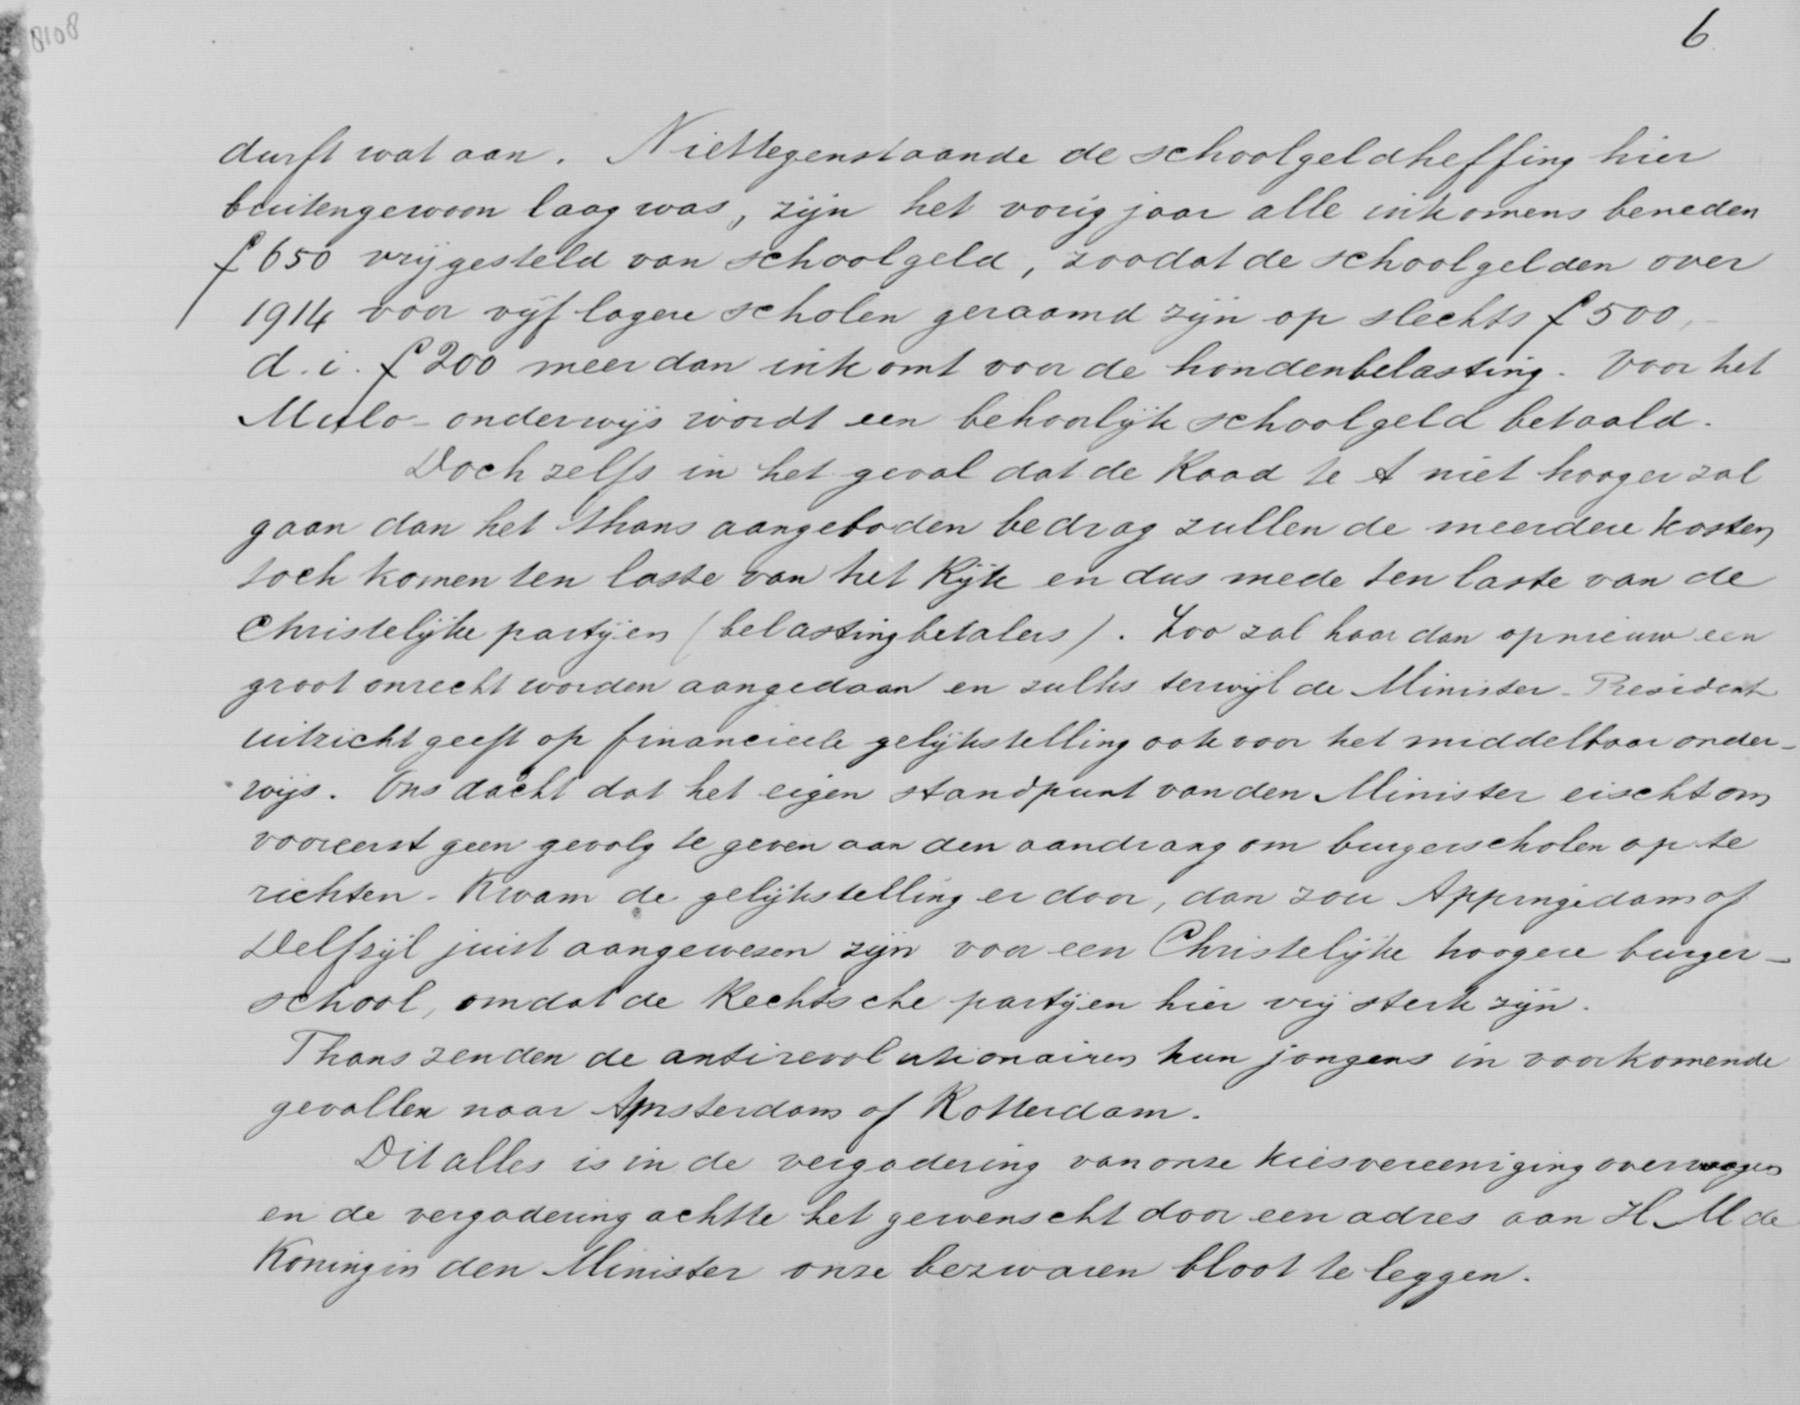 8108
6
durft wat aan. Niettegenstaande de schoolgeldheffing hier
buitengewoon laag was, zijn het vorig jaar alle inkomens beneden
f 650 vrijgesteld van schoolgeld, zoodat de schoolgelden over
1914 voor vijf lagere scholen geraamd zijn op slechts f 500,-
d.i. f 200 meer dan inkomt voor de hondenbelasting. Voor het
Mulo-onderwijs wordt een behoorlijk schoolgeld betaald.
Doch zelfs in het geval dat de Raad te A niet hooger zal
gaan dan het thans aangeboden bedrag zullen de meerdere kosten
toch komen ten laste van het Rijk en dus mede ten laste van de
Christelijke partijen (belastingbetalers). Zoo zal haar dan opnieuw een
groot onrecht worden aangedaan en zulks terwijl de Minister-President
uitzicht geeft op financieele gelijkstelling ook voor het middelbaar onder-
wijs. Ons dacht dat het eigen standpunt van den Minister eischt om
vooreerst geen gevolg te geven aan den aandrang om burgerscholen op te
richten. Kwam de gelijkstelling er door, dan zou Appingedam of
Delfzijl juist aangewezen zijn voor een Christelijke hoogere burger-
school, omdat de Rechtsche partijen hier vrij sterk zijn.
Thans zenden de antirevolutionairen hun jongens in voorkomende
gevallen naar Amsterdam of Rotterdam.
Dit alles is in de vergadering van onze kiesvereeniging overwogen
en de vergadering achtte het gewenscht door een adres aan H M de
Koningin den Minister onze bezwaren bloot te leggen.